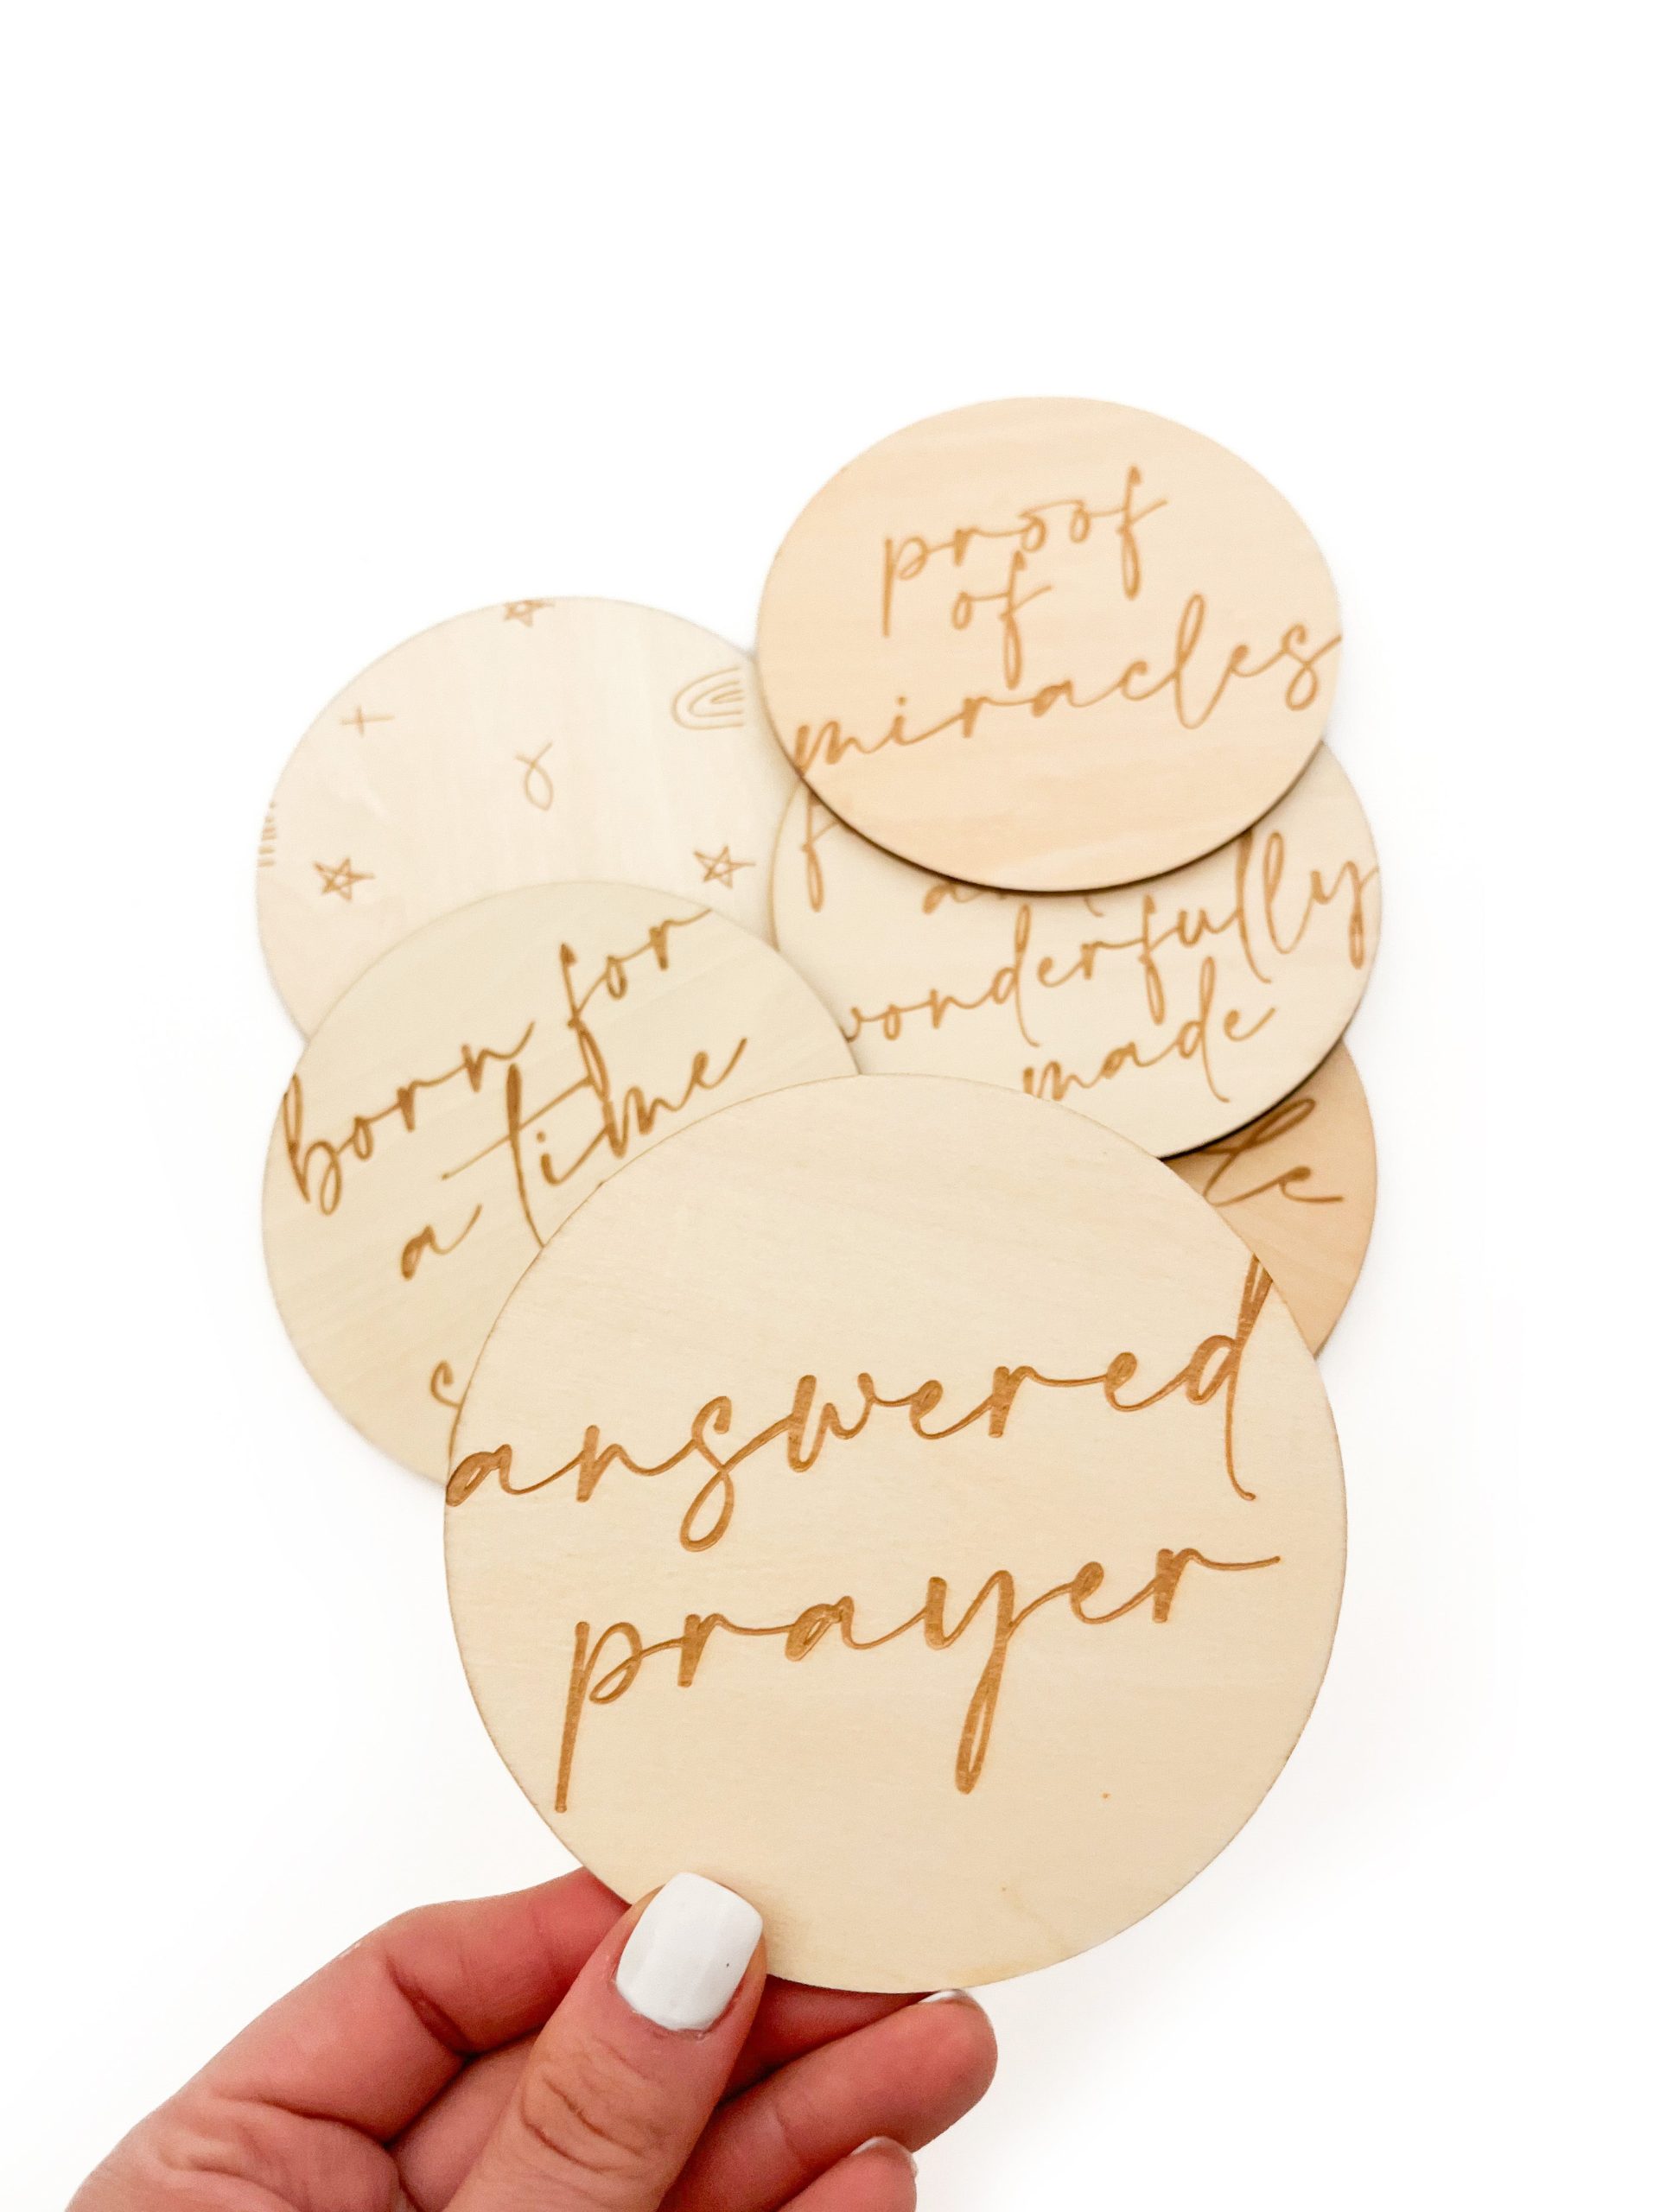 proof
of
miracles
wonderfully
made
born for
a time
answered
prayer